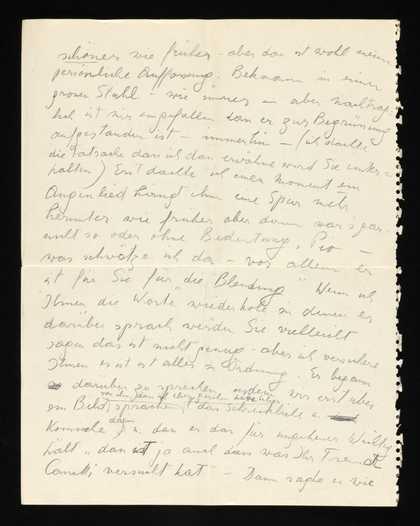 schöner wie früher - aber das ist wohl meine
persönliche Auffassung. Bekmann in einer
grauen Stahl - wie immer - aber nachträg-
lich ist mir eingefallen dass er zur Begrüssung
aufgestanden ist - immerhin - (ich dachte
die Tatsache dass ich das erwähne wird Sie unter-
halten) Erst dachte ich einen Moment ein
Augenlied hängt ihm eine Spur mehr
herunter wie früher aber dann war's gar
nicht so oder ohne Bedeutung,
was schwätze ich da - vor allem er
ist für Sie für "die Blendung" Wenn ich
Ihnen die Worte wiederhole in denen er
darüber sprach werden Sie vielleicht
sagen das ist nicht genug - aber ich versichere
Ihnen es ist alles in Ordnung. Er begann
darüber zu sprechen, wir erst über
ein Bild sprachen das schreckliche u.
Komische u. dass er das für ungeheuer wichtig
hält "das ist ja auch das was Ihr Freund
Canetti versucht hat" - Dann sagte er wie